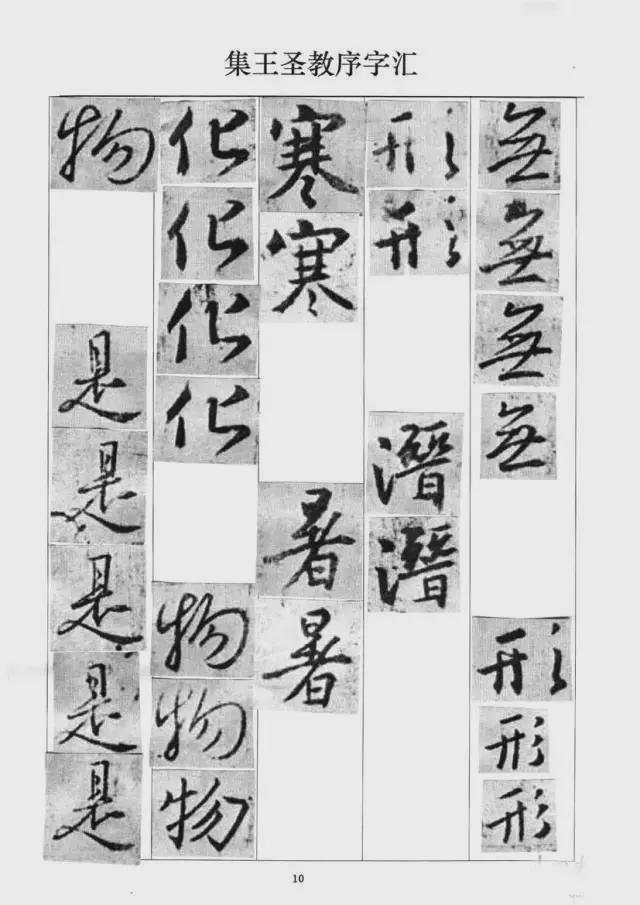 集王圣教序字汇
無無無無形形形
形形潛潛
寒寒暑暑
化化化化物物物
物是是是是是
10